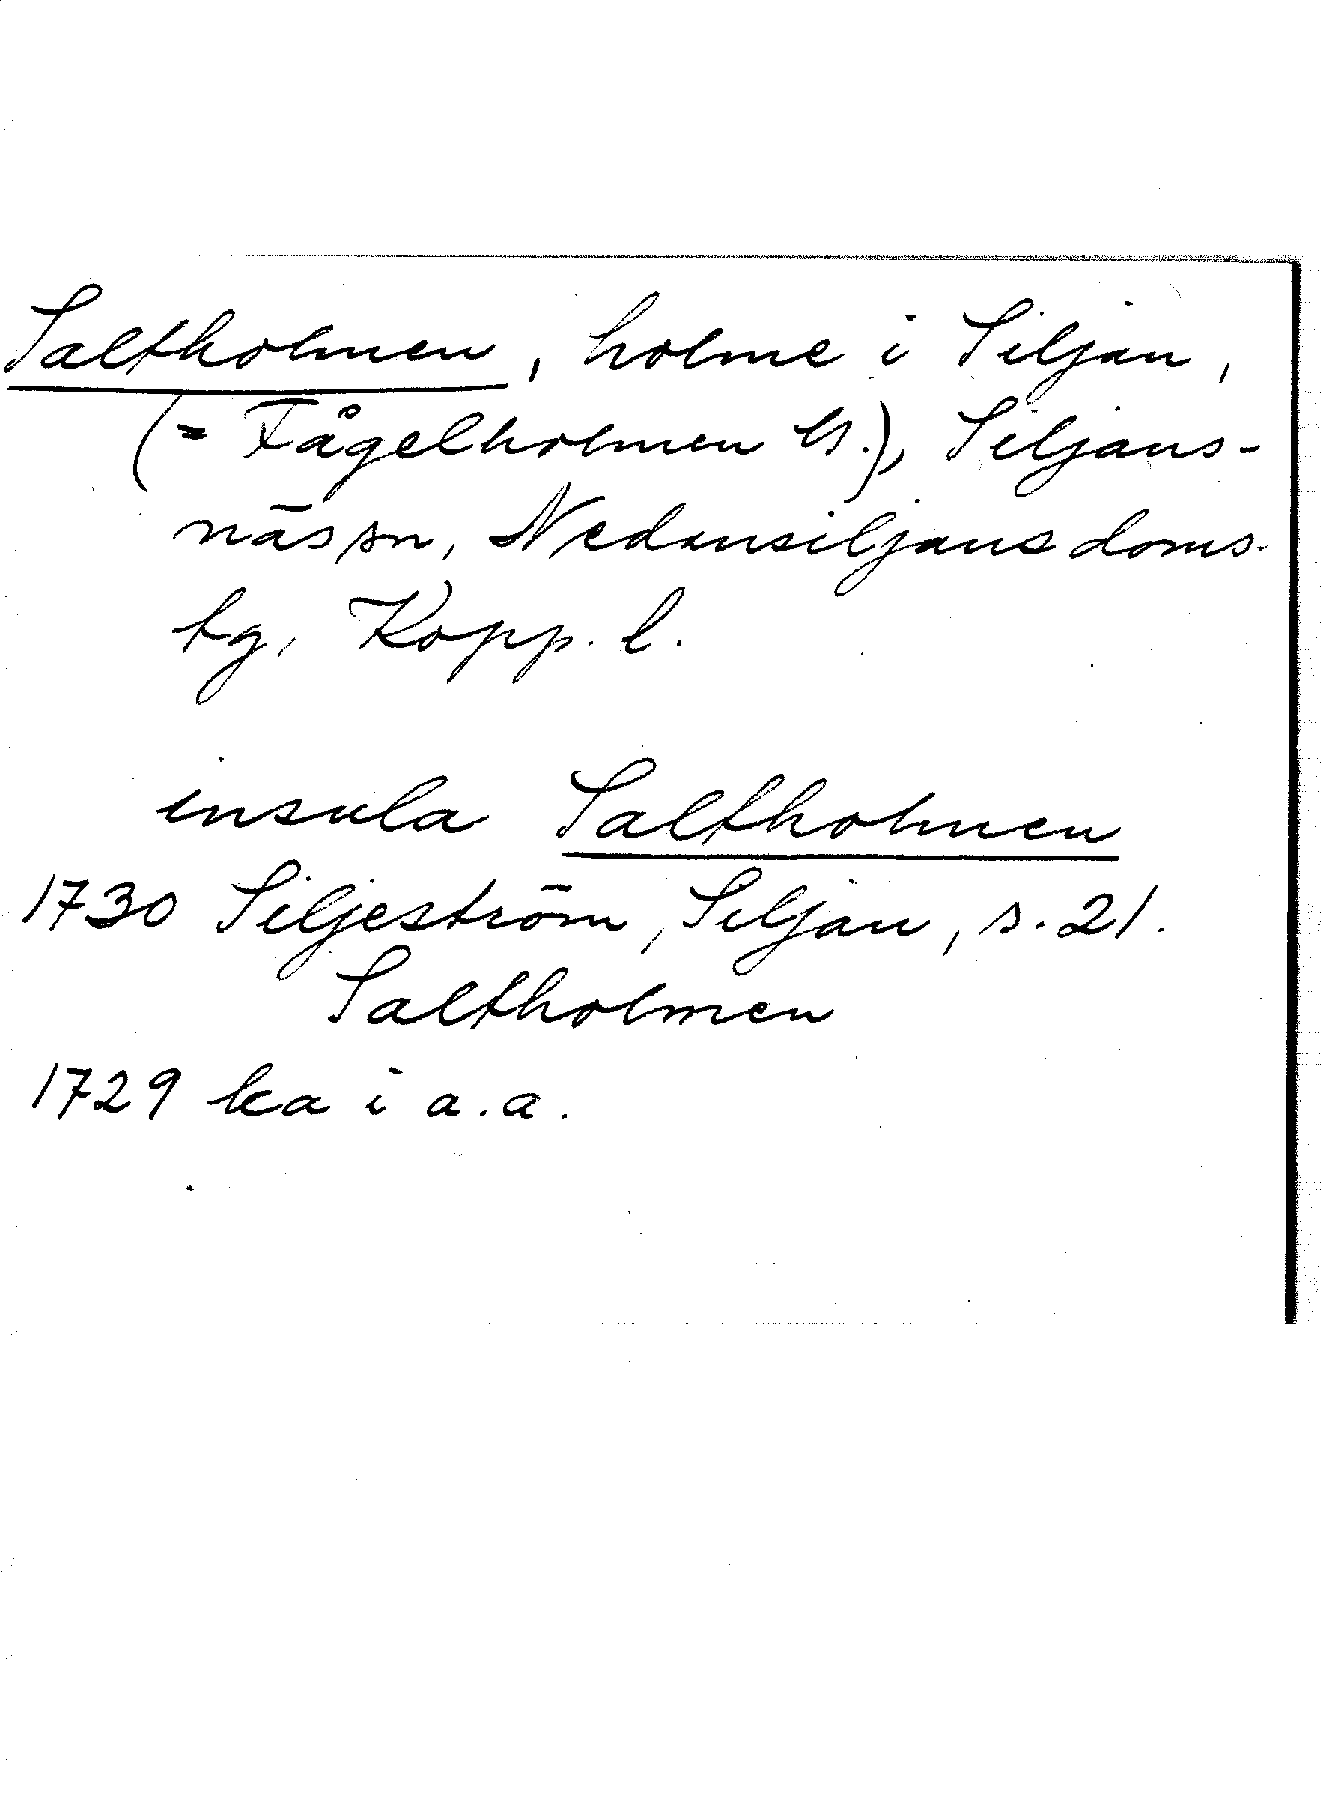 Saltholmen, holme i Siljan,
(= Fågelholmen), Siljans-
näs sn, Nedansiljans doms-
tg, Kopp. l.
insula Saltholmen
1730 Siljeström, Siljan, s. 21.
Saltholmen
1729 ka i a.a.